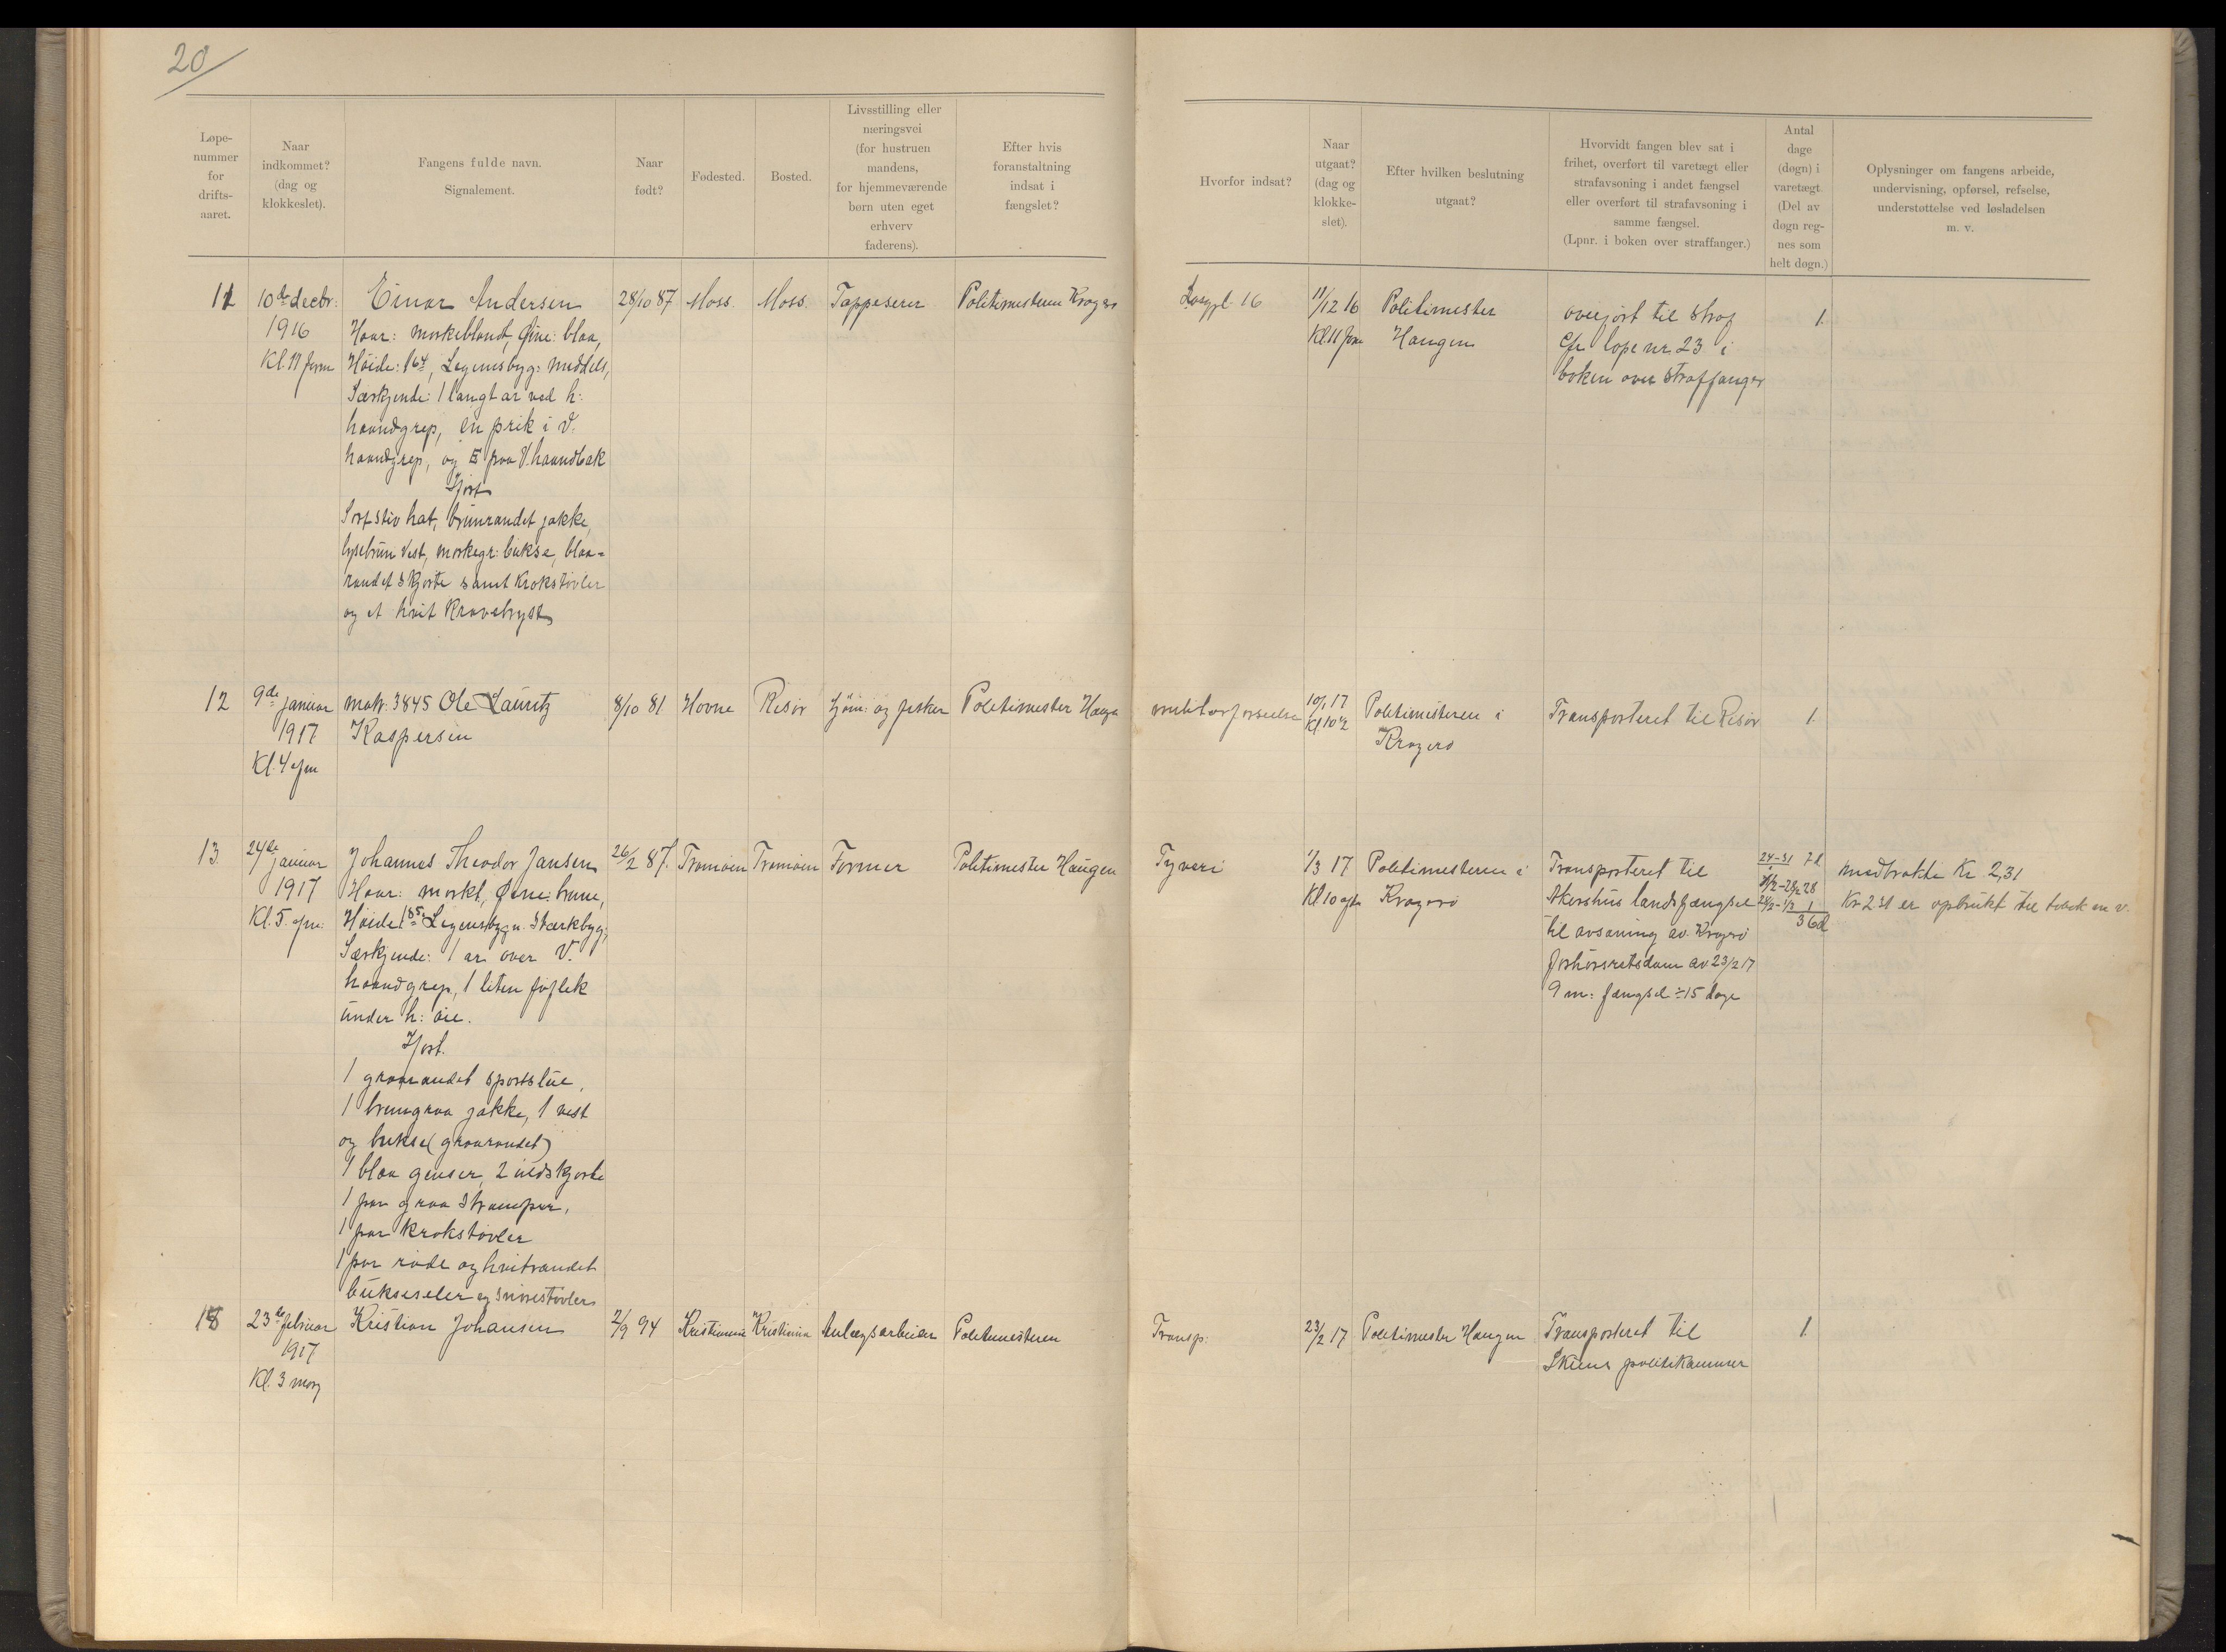 20
Løpe-
nummer
for
drifts-
aaret.
Naar
indkommet?
(dag og
klokkeslet).
Fangens fulde navn.
Signalement.
Naar
født?
Fødested.
Bosted.
Livsstilling eller
næringsvei
(for hustruen
mandens,
for hjemmeværende
børn uten eget
erhverv
faderens).
Efter hvis
foranstaltning
indsat i
fængslet?
Hvorfor indsat?
Naar
utgaat?
(dag og
klokke-
slet).
Efter hvilken beslutning
utgaat?
Hvorvidt fangen blev sat i
frihet, overført til varetægt eller
strafavsoning i andet fængsel
eller overført til strafavsoning i
samme fængsel.
(Lpnr. i boken over straffanger.)
Antal
dage
(døgn) i
varetægt.
(Del av
døgn reg-
nes som
helt døgn.)
Oplysninger om fangens arbeide,
undervisning, opførsel, refselse,
understøttelse ved løsladelsen
m. v.
11
10de decbr:
1916
Kl. 11 form
Einar Andersen
Haar: mørkeblondt, Øine: blaa,
Høide: 164, Legemsbyg: middels,
Særkjende: 1 langt ar ved h:
haandgrep, en prik i V.
haandgrep, og E paa V. haandbak
Iført
Sort stiv hat, brunrandet jakke,
lysebrun Vest, mørkegr: bukse, blaa-
randet skjorte samt krokstøvler
og et hvit Kravebryst
28/10 87
Moss.
Moss.
Tappeserer
Politimesteren Kragerø
Løsgpl. 16
11/12 16
Kl 11 form
Politimester
Haugen
overført til straf
Cfr løpe nr. 23 i
boken over straffanger
1.
12
9de januar
1917
Kl. 4 efm
matr: 3845 Ole Lauritz
Kaspersen
8/10 81
Hovne
Risør
Sjøm: og fisker
Politimester Haugen
militærforseelse
10/1 17
Kl 10 1/2
Politimesteren i
Kragerø
Transporteret til Risør
1.
13
24de januar
1917
Kl. 5. efm:
Johannes Theodor Jansen
Haar: mørkt, Øine: brune,
Høide 185 Legemsbygn. Stærkbyg:
Særkjende: 1 ar over V.
haandgrep, 1 liten føflek
under h: øie.
Iført.
1 graarandet sportslue,
1 brungraa jakke, 1 vest
og bukse (graarandet)
1 blaa genser, 2 uldskjorte
1 par graa strømper,
1 par krokstøvler
1 par røde og hvitrandet
bukseseler og snørestøvler
26/2 87.
Tromøen
Tromøen
Former
Politimester Haugen
Tyveri
1/3 17
Kl 10 aft
Politimesteren i
Kragerø
Transporteret til
Akershus landsfængsel
til avsoning av Kragerø
forhørsretsdom av 23/2 17
9 m: fængsel ÷ 15 dage
24-31 7 d
1/2-28/2 28
28/2-1/3 1
36 d
medbrakte Kr 2,31
Kr 2.31 er opbrukt til tobak m v.
18
23de februar
1917
Kl. 3 morg
Kristian Johansen
2/9 94
Kristiania
Kristiania
Anlægsarbeider
Politimesteren
Transp:
23/2 17
Politimester Haugen
Transporteret til
Skiens politikammer
1.